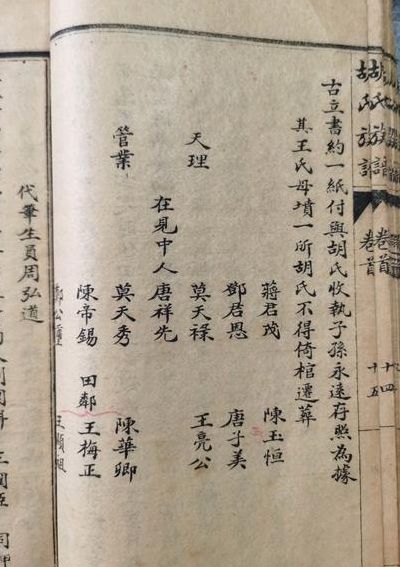 胡氏族譜 卷首 十四
胡氏族譜 卷首 十五
古立書約一紙付與胡氏收執子孫永遠存照為據
其王氏母墳一所胡氏不得倚棺遷葬
蔣君茂 陳玉恒
鄧君恩 唐子美
天理 莫天祿 王亮公
在見中人唐祥先
管業 莫天秀 陳華卿
陳帝錫 田鄰王梅正
代筆生員周弘道